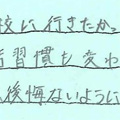 校に行きたか。
活習慣も変わ
後悔ないように